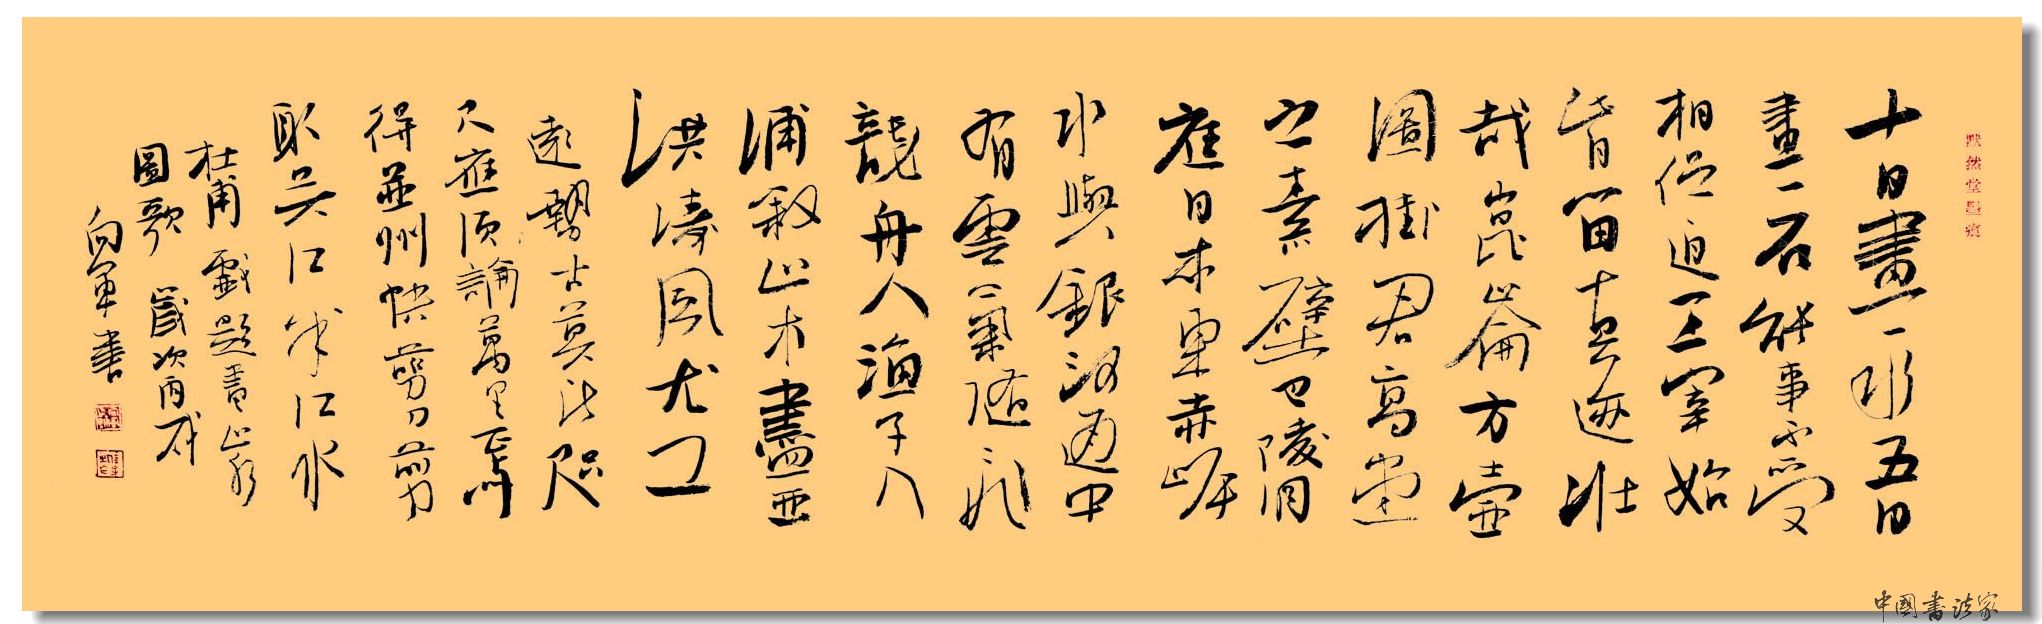 默然堂墨痕
十日畫一水五日
畫一石能事不受
相促迫王宰始
肯留真迹壯
哉崑崙方壺
圖掛君高堂
之素壁巴陵洞
庭日本東赤岸
水與銀河通中
有雲氣隨飛
龍舟人漁子入
浦漵山木盡亞
洪濤風尤工
遠勢古莫比咫
尺應須論萬里焉
得並州快剪刀剪
取吳江半江水
杜甫戲題畫山水
圖歌 歲次丙戌
向軍書
中國書法家